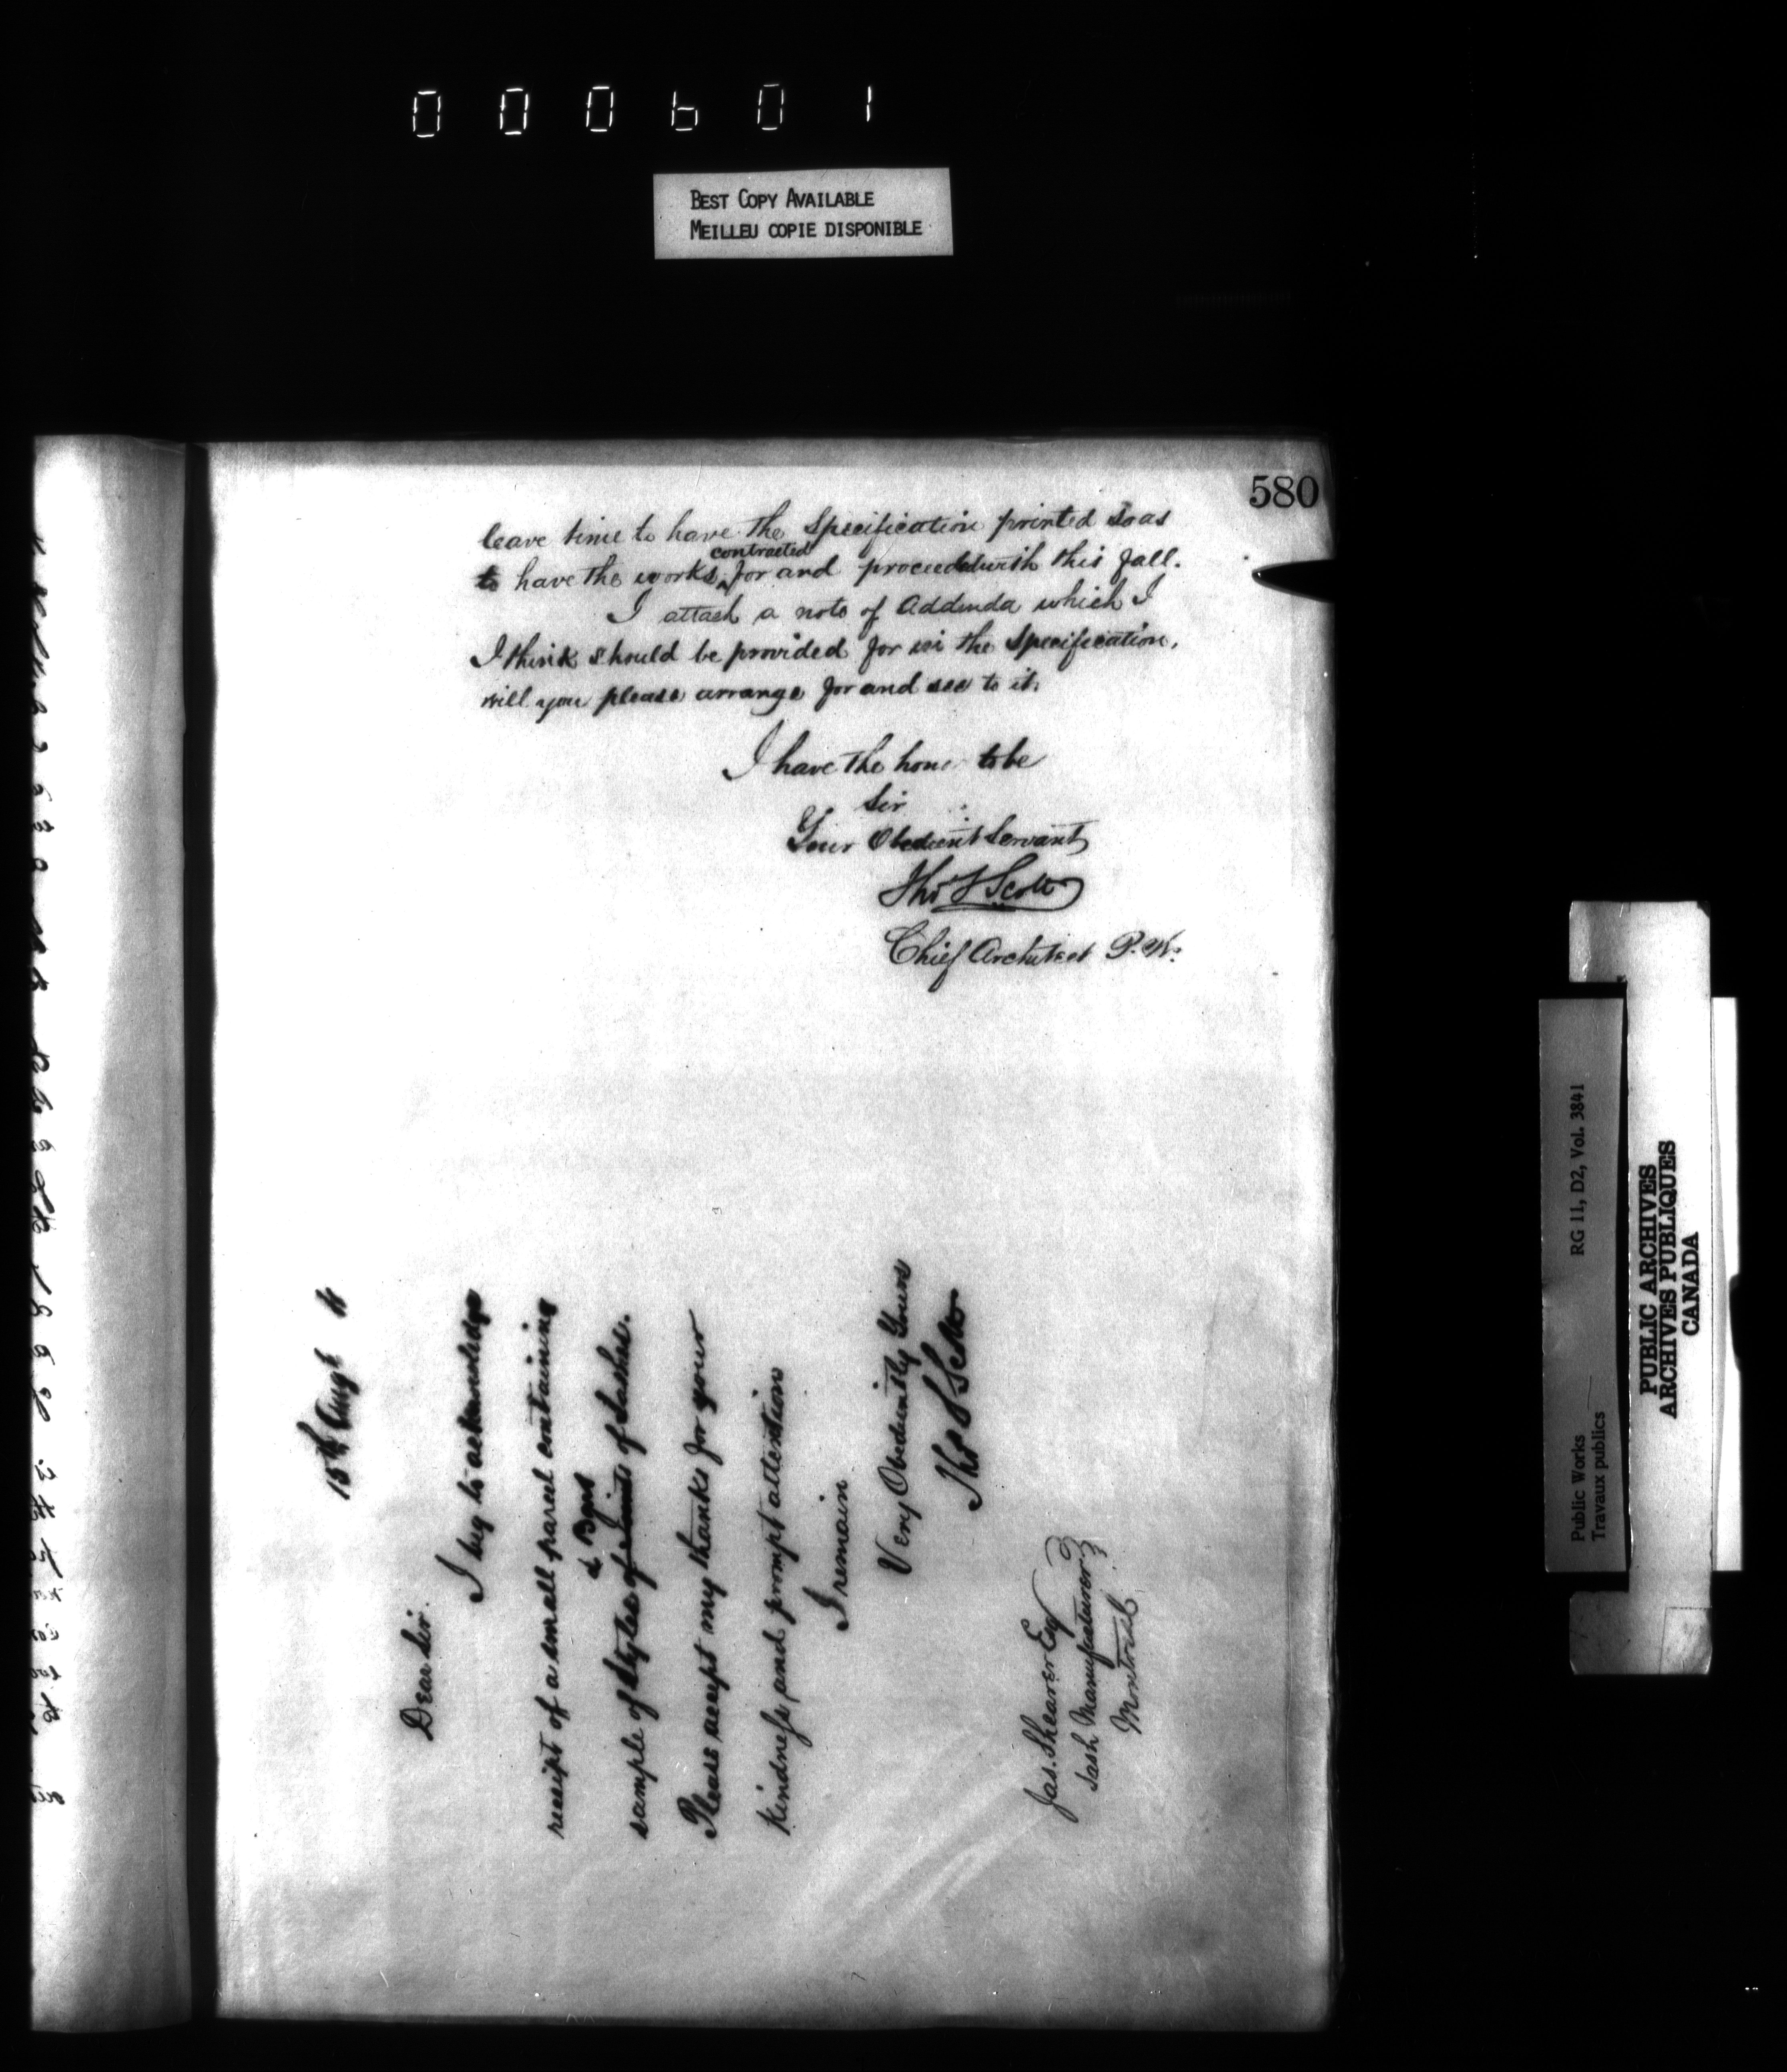 000601
BEST COPY AVAILABLE
MEILLEU COPIE DISPONIBLE
580
leave time to have the Specification printed so as
contracted
to have the works for and proceeded with this fall.
I attach a note of Addenda which I
I think should be provided for in the Specification,
will you please arrange for and see to it.
I have the honor to be
Sir
Your Obedient Servant
Thos S Scott
Chief Architect P.W.
15th Augt
Dear Sir.
I beg to acknowledge
receipt of a small parcel containing
& Bars
sample of Styles of of Sashes.
Please accept my thanks for your
kindness and prompt attention
I remain
Very Obediently Yours
Thos S Scott
Jas. Shearer Esq
Sash Manufacturer
Montreal
Public Works
Travaux publics
RG 11, D2, Vol. 3841
PUBLIC ARCHIVES
ARCHIVES PUBLIQUES
CANADA